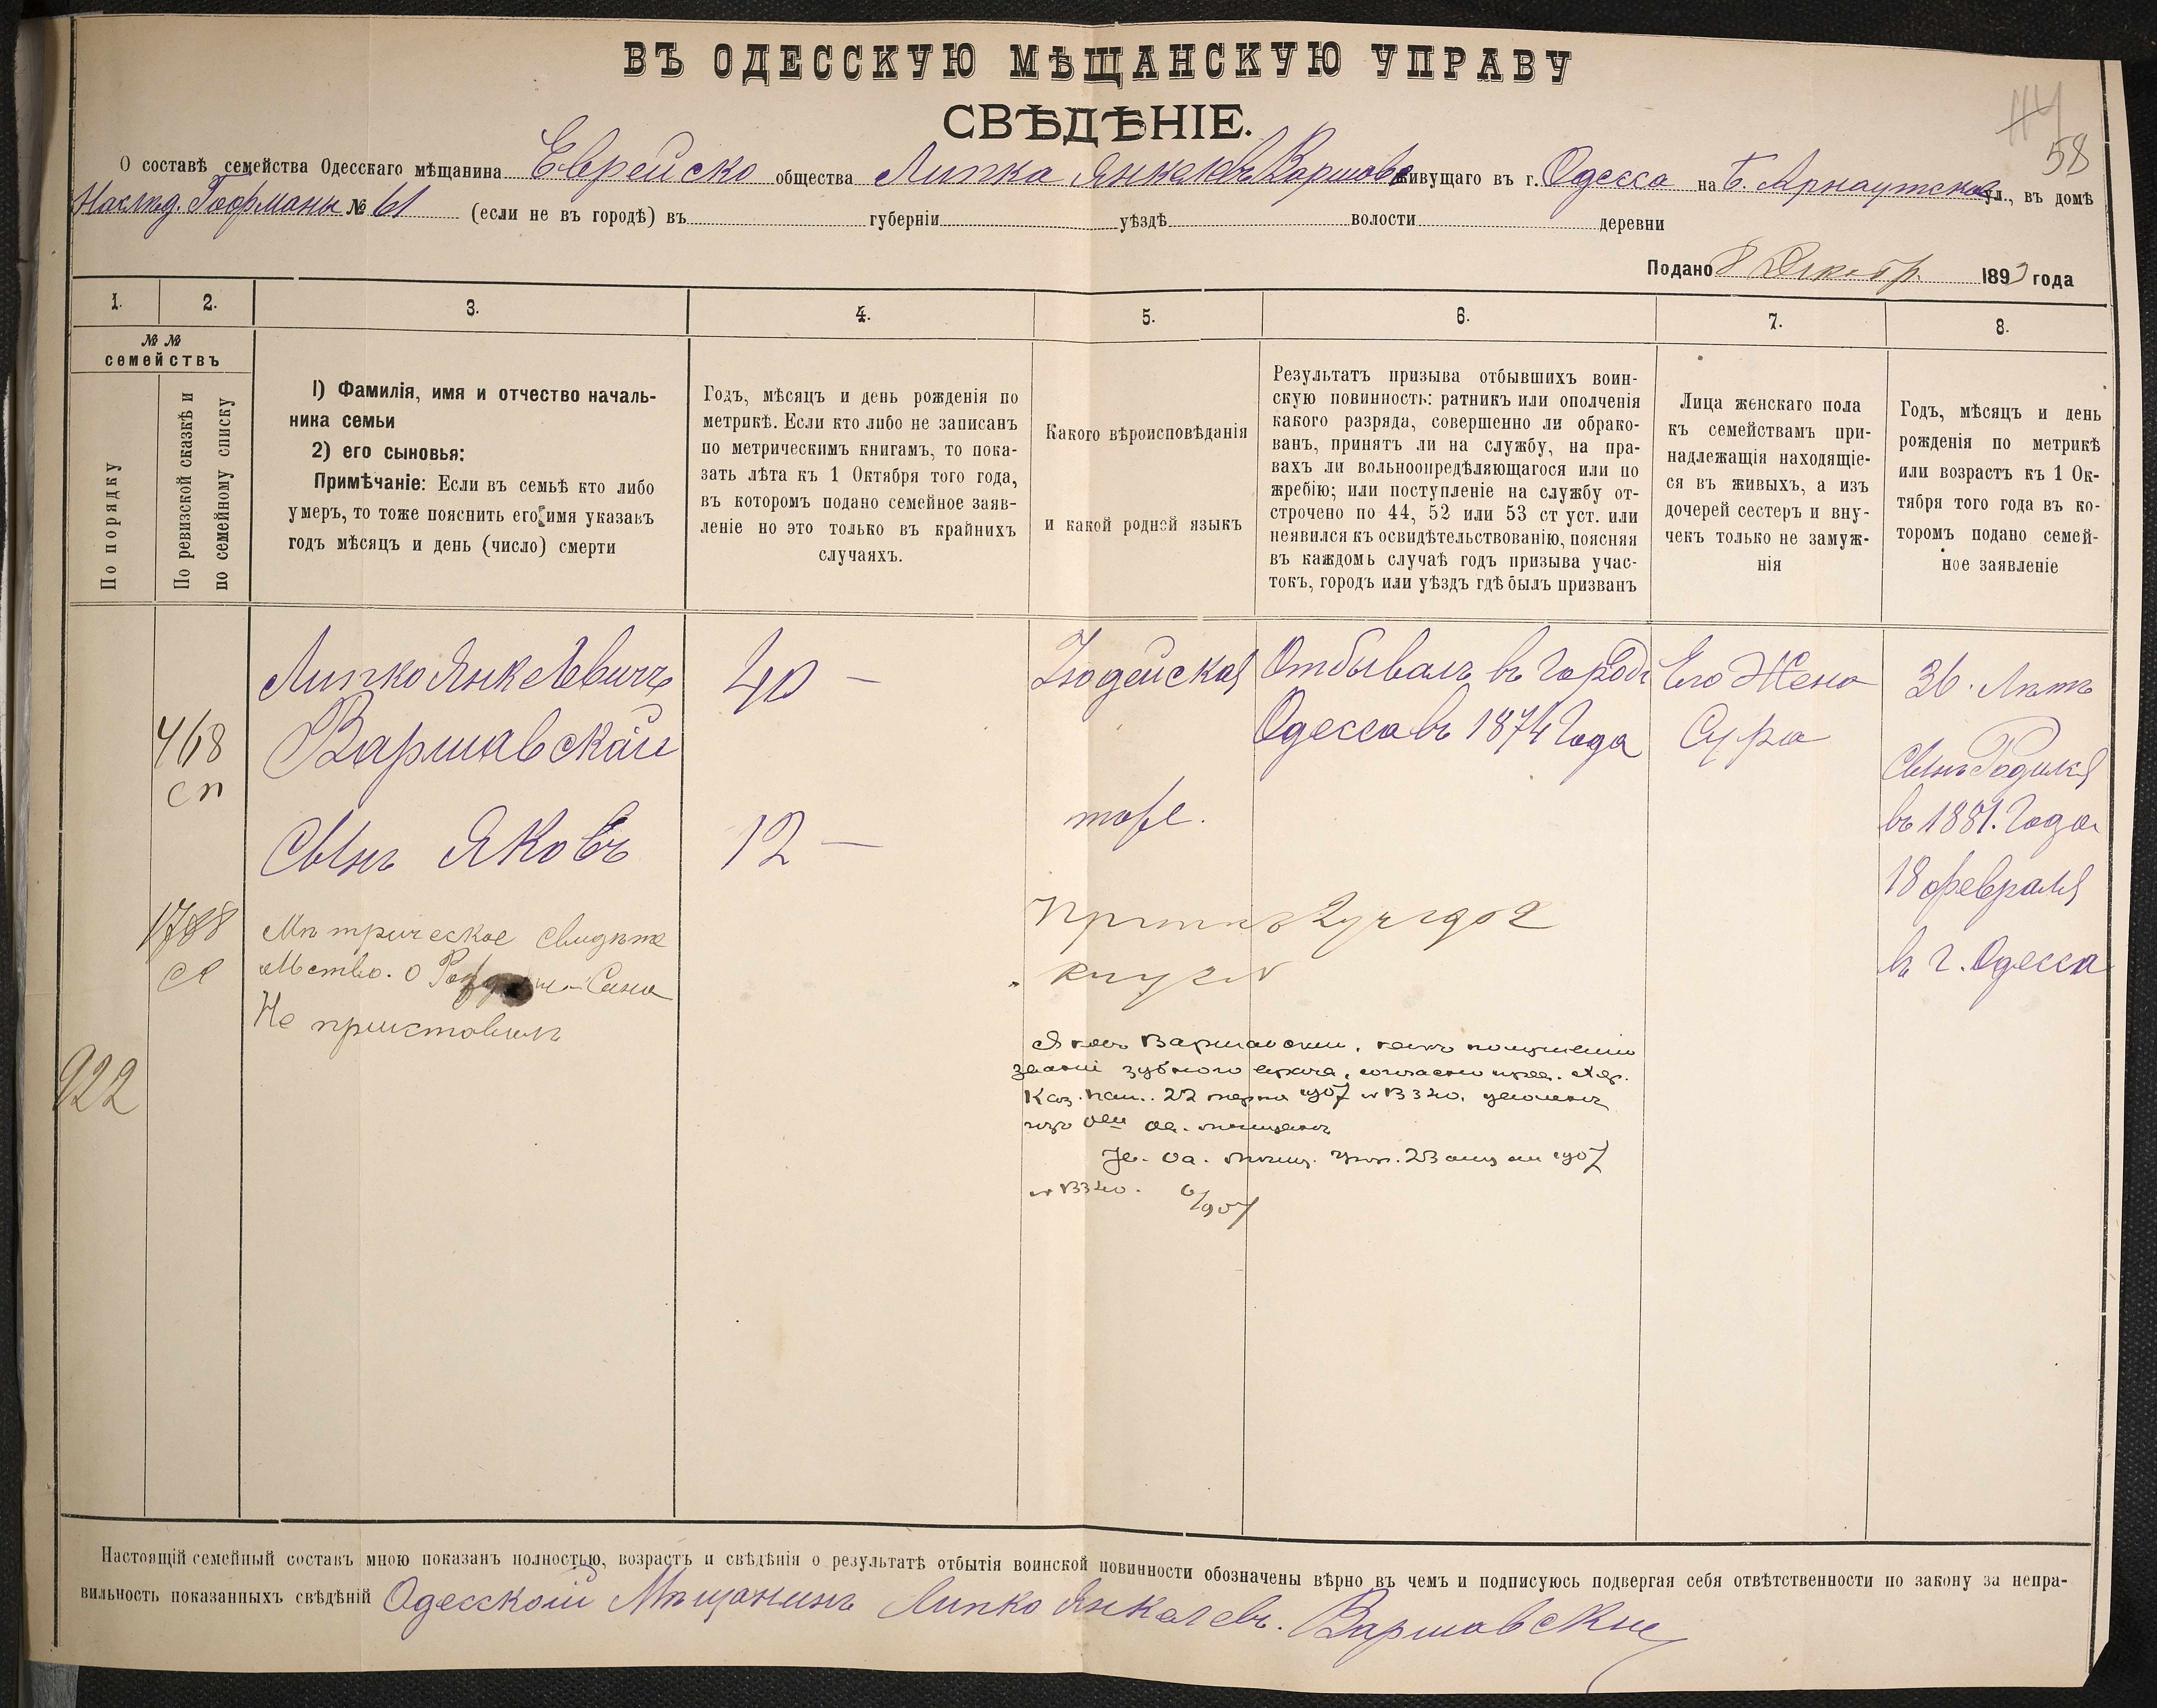 ВЪ ОДЕССКУЮ МѢЩАНСКУЮ УПРАВУ
СВѢДѢНІЕ.
58
О составѣ семейства Одесскаго мѣщанина Еврейско общества Липка Янкелевъ Варшавс живущаго въ г. Одесса на Б. Арнаутской ул., въ домѣ
Наслѣд. Гофманы № 61 (если не въ городѣ) въ губерніи уѣздѣ волости деревни
Подано 8 Декабр. 1893 года
1. 2. 3. 4. 5. 6. 7. 8.
№ №
семействъ
По порядку
По ревизской сказкѣ и
по семейному списку
1) Фамилія, имя и отчество началь-
ника семьи
2) его сыновья:
Примѣчаніе: Если въ семьѣ кто либо
умеръ, то тоже пояснить его имя указавъ
годъ мѣсяцъ и день (число) смерти
Годъ, мѣсяцъ и день рожденія по
метрикѣ. Если кто либо не записанъ
по метрическимъ книгамъ, то пока-
зать лѣта къ 1 Октября того года,
въ которомъ подано семейное заяв-
леніе но это только въ крайнихъ
случаяхъ.
Какого вѣроисповѣданія
и какой родной языкъ
Результатъ призыва отбывшихъ воин-
скую повинность: ратникъ или ополченія
какого разряда, совершенно ли обрако-
ванъ, принятъ ли на службу, на пра-
вахъ ли вольноопредѣляющагося или по
жребію; или поступленіе на службу от-
строчено по 44, 52 или 53 ст уст. или
неявился къ освидѣтельствованію, поясняя
въ каждомъ случаѣ годъ призыва учас-
токъ, городъ или уѣздъ гдѣ былъ призван
Лица женскаго пола
къ семействамъ при-
надлежащія находящіе-
ся въ живыхъ, а изъ
дочерей сестеръ и вну-
чекъ только не замуж-
нія
Годъ, мѣсяцъ и день
рожденія по метрикѣ
или возрастъ къ 1 Ок-
тября того года въ ко-
торомъ подано семей-
ное заявленіе
468
сп
Липко Янкелевичъ
Варшавскай
40 —
Іюдейская
Отбывалъ въ Городѣ
Одесса въ 1874 Года
Его Жена
Сура
36. Лѣтъ
Сынъ Яковъ
12 —
тоже.
Сынъ Родился
въ 1881. Года
18 февраля
въ г. Одесса
1788
922
Метрическое свидѣте
льство. о Сина
Не приставилъ
Яковъ Варшавскій, какъ получившій
званіе зубного врача, согласно
Каз. Пал. 22 марта 1907 № В340, уволенъ
изъ
23 1907
№ В340. 6/907
Настоящій семейный составъ мною показанъ полностью, возрастъ и свѣдѣнія о результатѣ отбытія воинской повинности обозначены вѣрно въ чемъ и подписуюсь подвергая себя отвѣтственности по закону за непра-
вильность показанныхъ свѣдѣній Одесскоій Мѣщанинъ Липко Янкелевъ. Варшавский